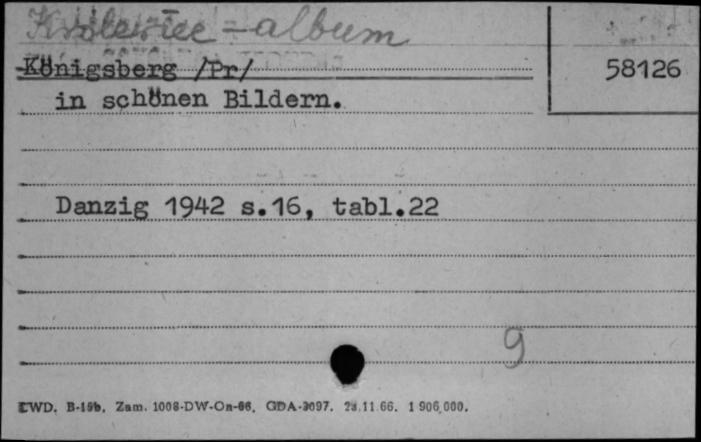 Królewiec - album
Königsberg /Pr/
58126
in schönen Bildern.
Danzig 1942 s.16, tabl.22
9
LWD. B-15b. Zam. 1008-DW-On-66. GDA-3097. 23.11.66. 1 906,000.